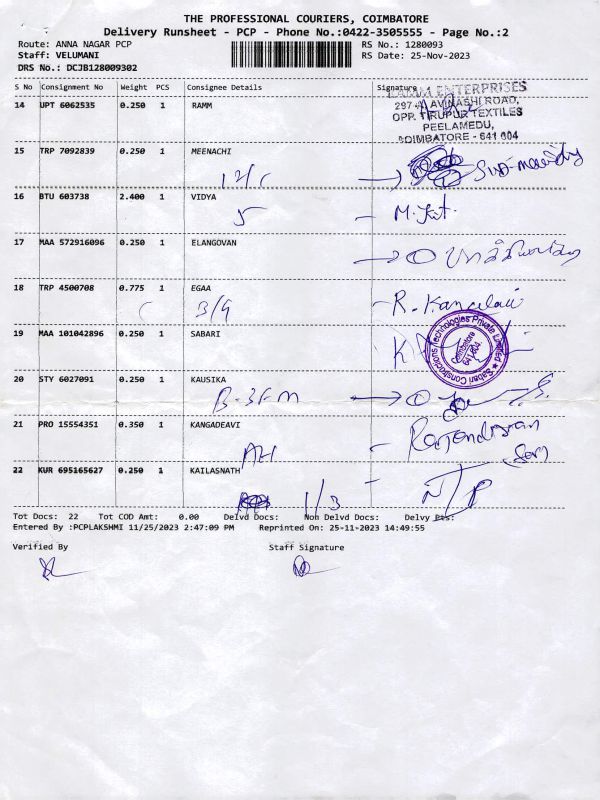 THE PROFESSIONAL COURIERS, COIMBATORE
Delivery Runsheet - PCP - Phone No.:0422-3505555 - Page No.:2
Route: ANNA NAGAR PCP RS No.: 1280093
Staff: VELUMANI RS Date: 25-Nov-2023
DRS No.: DCJB128009302
S No Consignment No Weight PCS Consignee Details Signature
14 UPT 6062535 0.250 1 RAMM
ENTERPRISES
297-A, AVINASHI ROAD,
OPP. TIRUPUR TEXTILES
PEELAMEDU,
COIMBATORE - 641 004
15 TRP 7092839 0.250 1 MEENACHI
16 BTU 603738 2.400 1 VIDYA
5
17 MAA 572916096 0.250 1 ELANGOVAN
18 TRP 4500708 0.775 1 EGAA
B/G
19 MAA 101042896 0.250 1 SABARI
Sabari Constructions Technologies Private Limited
Coimbatore
641 004.
20 STY 6027091 0.250 1 KAUSIKA
21 PRO 15554351 0.350 1 KANGADEAVI
22 KUR 695165627 0.250 1 KAILASNATH
1/3
Tot Docs: 22 Tot COD Amt: 0.00 Delvd Docs: Non Delvd Docs: Delvy Pts:
Entered By :PCPLAKSHMI 11/25/2023 2:47:09 PM Reprinted On: 25-11-2023 14:49:55
Verified By Staff Signature